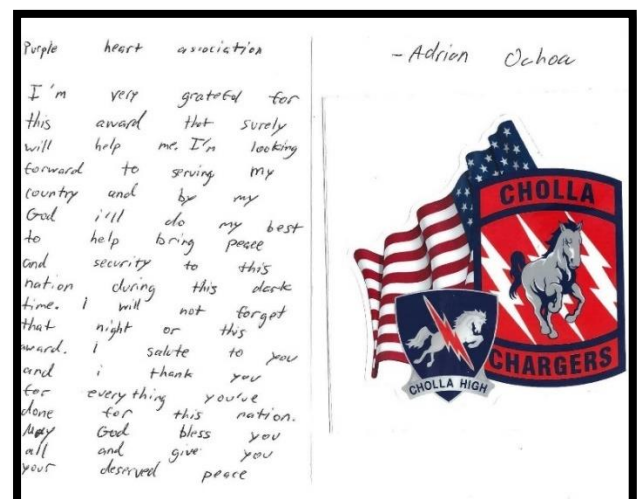 Purple heart association
I'm very grateful for
this award that surely
will help me. I'm looking
forward to serving my
country and by my
God i'll do my best
to help bring peace
and security to this
nation during this dark
time. I will not forget
that night or this
award. I salute to you
and i thank you
for everything you've
done for this nation.
May God bless you
all and give you
your deserved peace
- Adrian Ochoa
CHOLLA
CHARGERS
CHOLLA HIGH